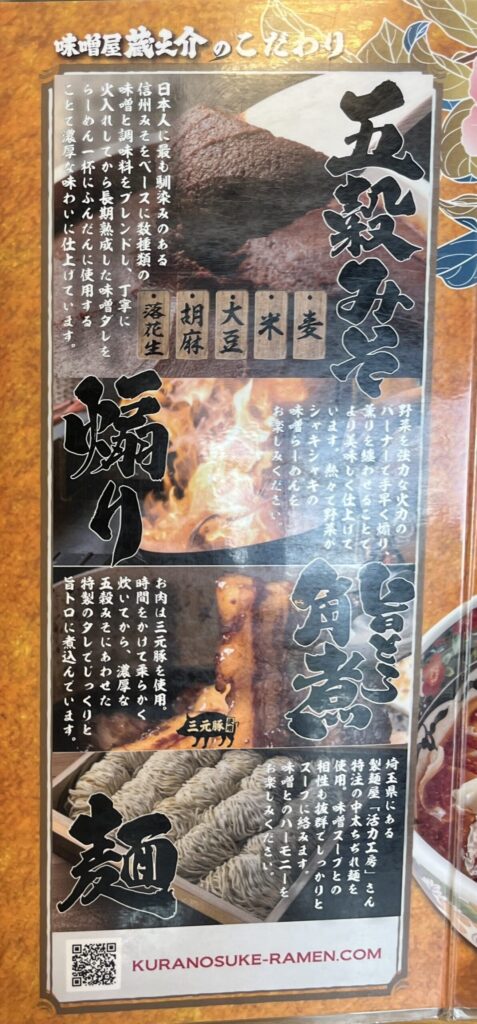 味噌屋蔵之介のこだわり
五穀みそ
日本人に最も馴染みのある
信州みそをベースに数種類の
味噌と調味料をブレンドし、丁寧に
火入れしてから長期熟成した味噌タレを
らーめん一杯にふんだんに使用する
ことで濃厚な味わいに仕上げています。
麦
米
大豆
胡麻
落花生
煽り
野菜を強力な火力の
バーナーで手早く煽り、
薫りを纏わせることで
より美味しく仕上げて
います。熱々で野菜が
シャキシャキの
味噌らーめんを
お楽しみください。
旨とろ
角煮
お肉は三元豚を使用。
時間をかけて柔らかく
炊いてから、濃厚な
五穀みそにあわせた
特製のタレでじっくりと
旨トロに煮込んでいます。
三元豚
麺
埼玉県にある
製麺屋「活力工房」さん
特注の中太ちぢれ麺を
使用。味噌スープとの
相性も抜群でしっかりと
スープに絡みます。
味噌とのハーモニーを
お楽しみください。
KURANOSUKE-RAMEN.COM